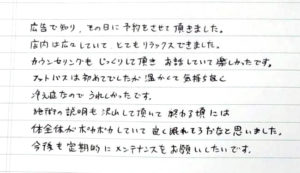 広告で知り、その日に予約をさせて頂きました。
店内は広々していて、とてもリラックスできました。
カウンセリングもじっくりして頂き お話していて楽しかったです。
フットバスは初めてでしたが温かくて気持ち良く
冷え症なのでうれしかったです。
施術の説明も沢山して頂いて 終わる頃には
体全体がポカポカしていて良く眠れそうだなと思いました。
今後も定期的にメンテナンスをお願いしたいです。